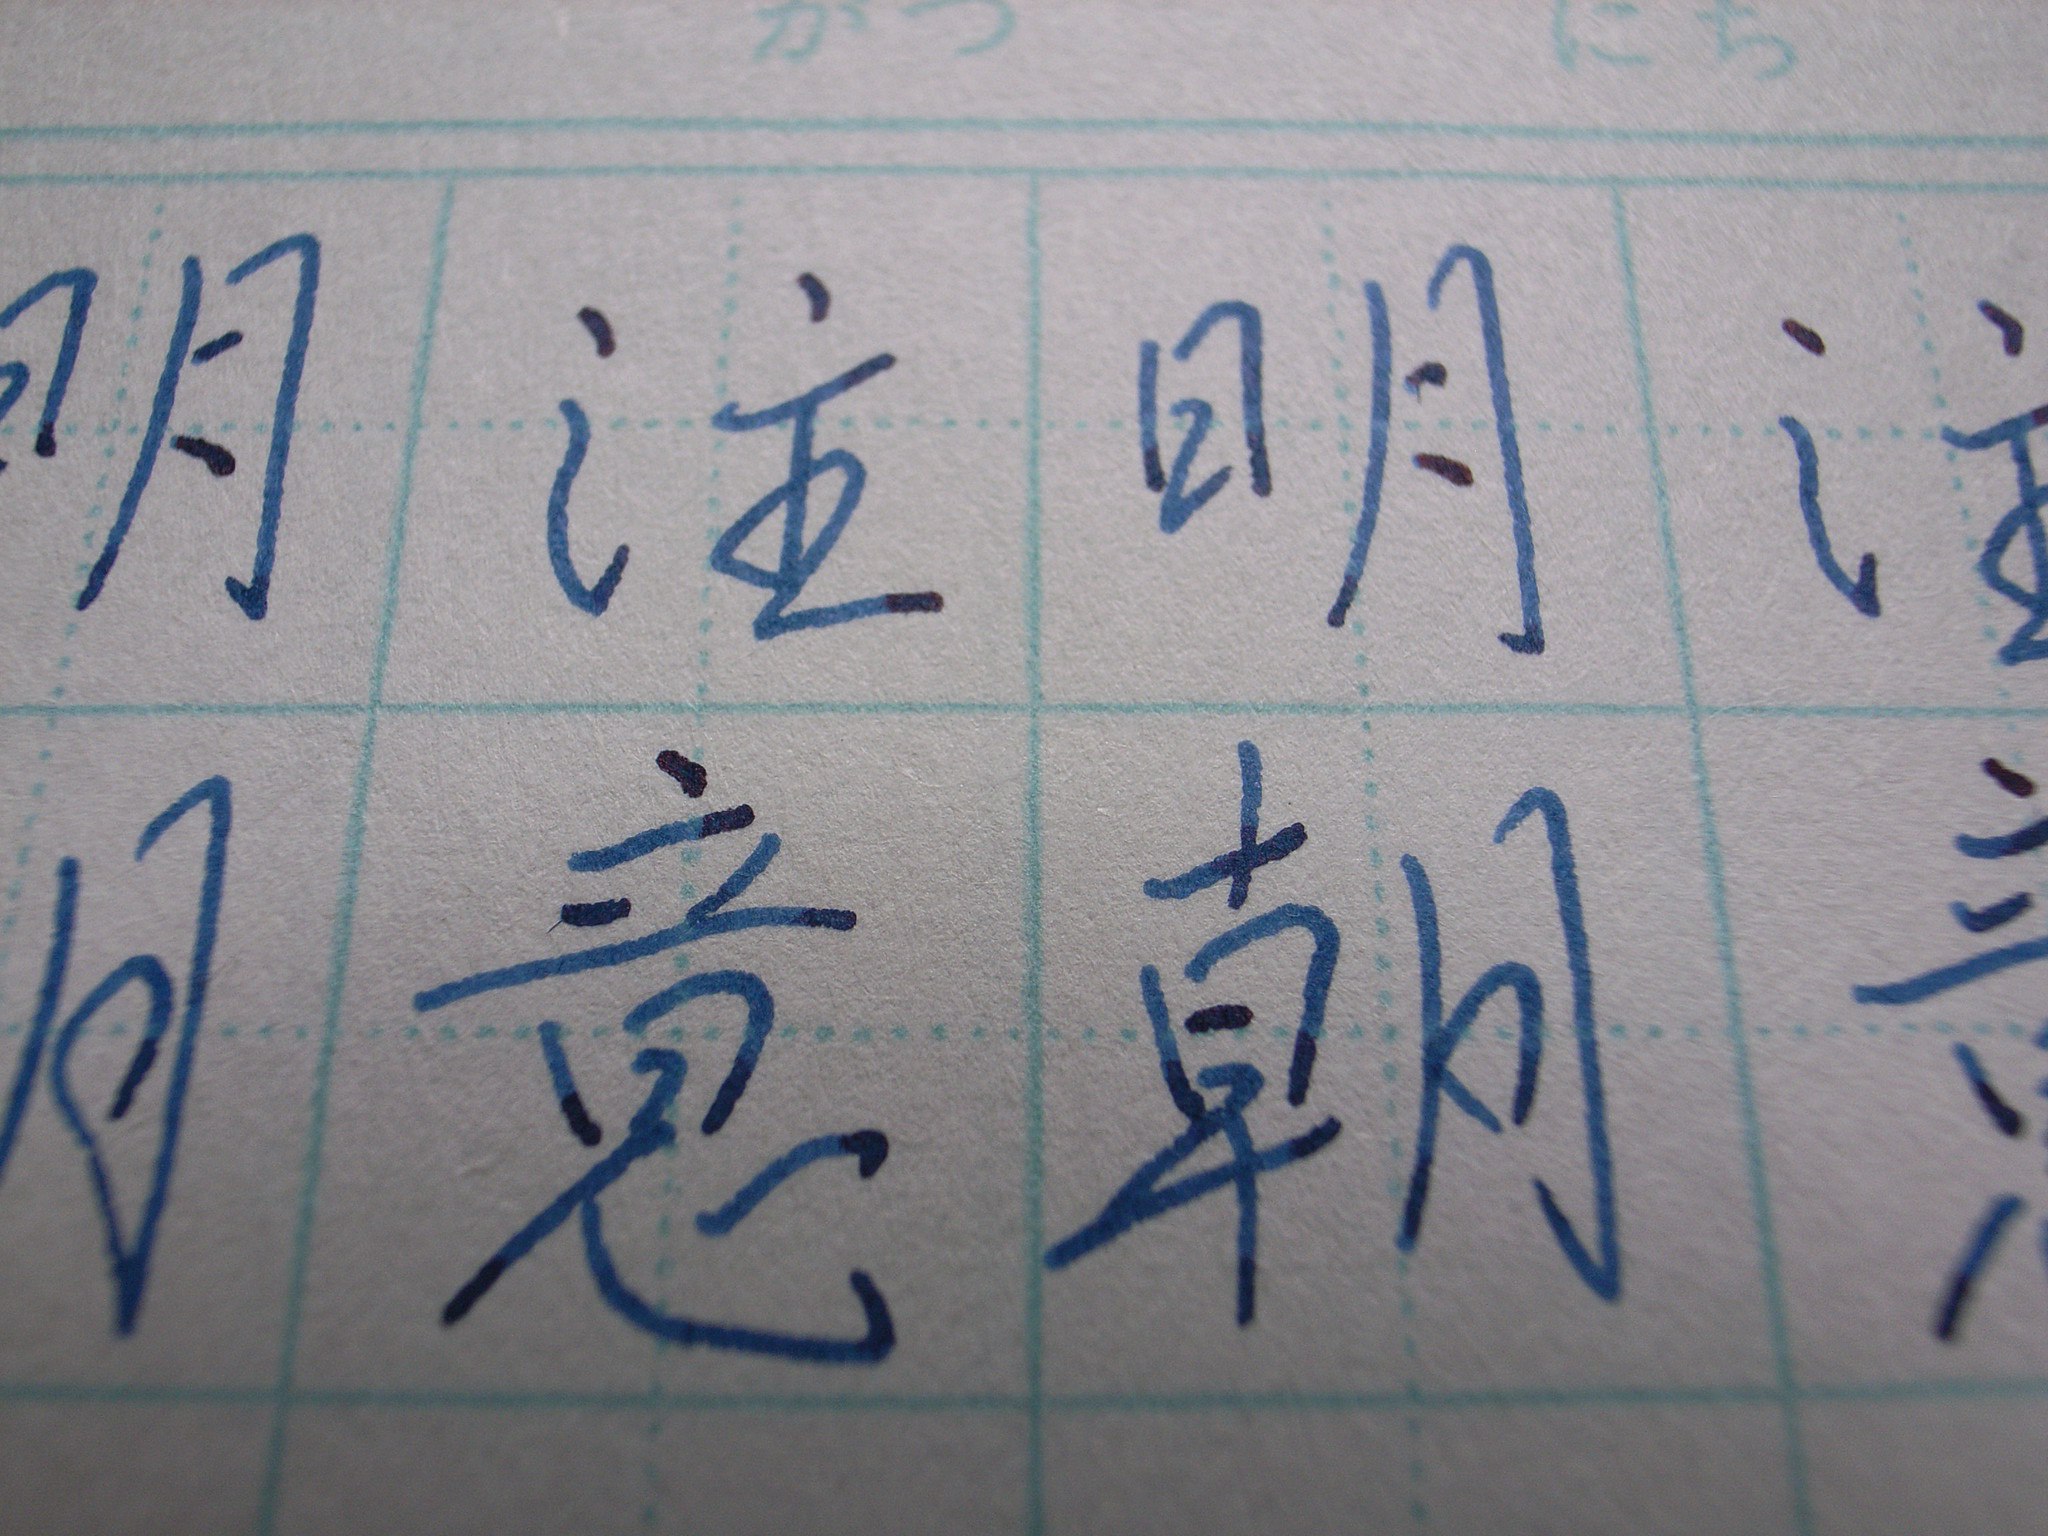 がつ にち
注意
明朝
注意
明